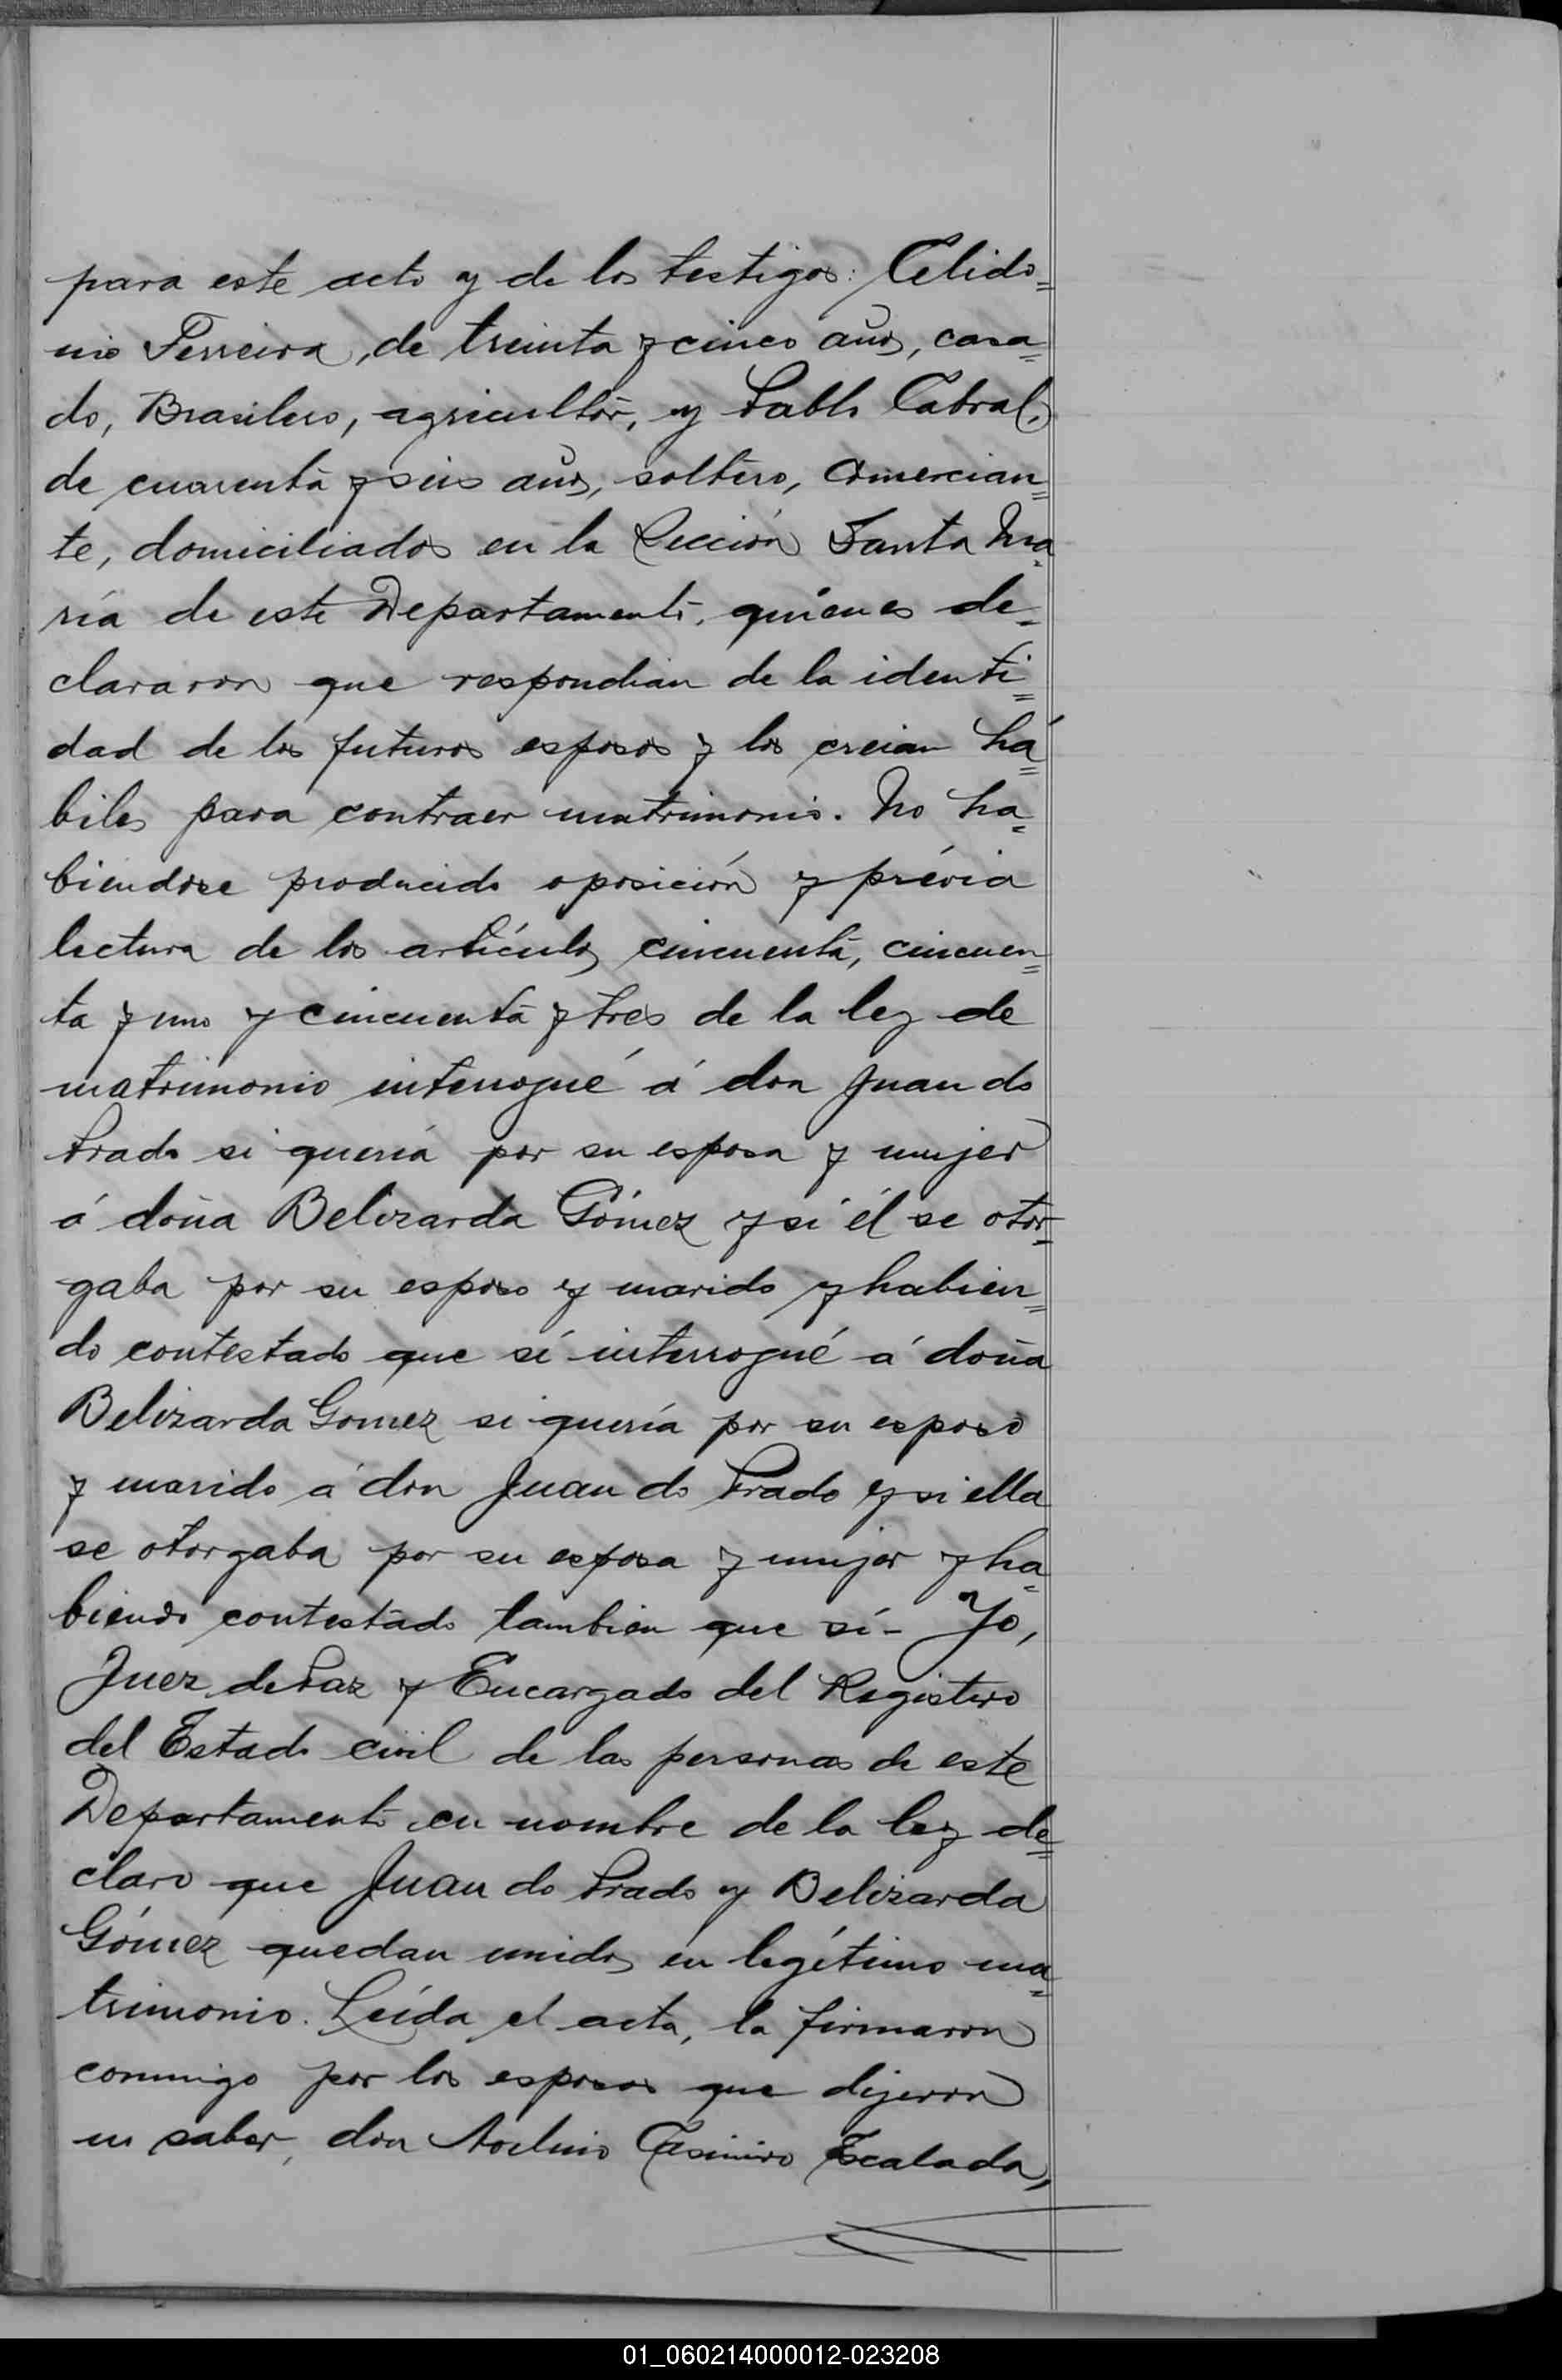 para este acto y de los testigos: Celido=
nio Ferreira, de treinta y cinco años, casa=
do, Brasilero, agricultor, y Pablo Cabral,
de cuarenta y seis años, soltero, comercian=
te, domiciliados en la Sección Santa Ma=
ría de este Departamento, quienes de=
clararon que respondian de la identi=
dad de los futuros esposos y los creian há=
biles para contraer matrimonio. No ha=
biendose producido oposición y prévia
lectura de los artículos cincuenta, cincuen=
ta y uno y cincuenta y tres de la ley de
matrimonio interrogué á don Juan do
Prado si quería por su esposa y mujer
á doña Belizarda Gómez y si él se otor=
gaba por su esposo y marido y habien=
do contestado que sí interrogué á doña
Belizarda Gomez si quería por su esposo
y marido á don Juan do Prado y si ella
se otorgaba por su esposa y mujer y ha=
biendo contestado tambien que sí - Yo,
Juez de Paz y Encargado del Registro
del Estado civil de las personas de este
Departamento en nombre de la ley de=
claro que Juan do Prado y Belizarda
Gómez quedan unidos en legítimo ma=
trimonio. Leída el acta, la firmaron
conmigo por los esposos que dijeron
no saber, don Avelino Casimiro Escalada,
01_060214000012-023208